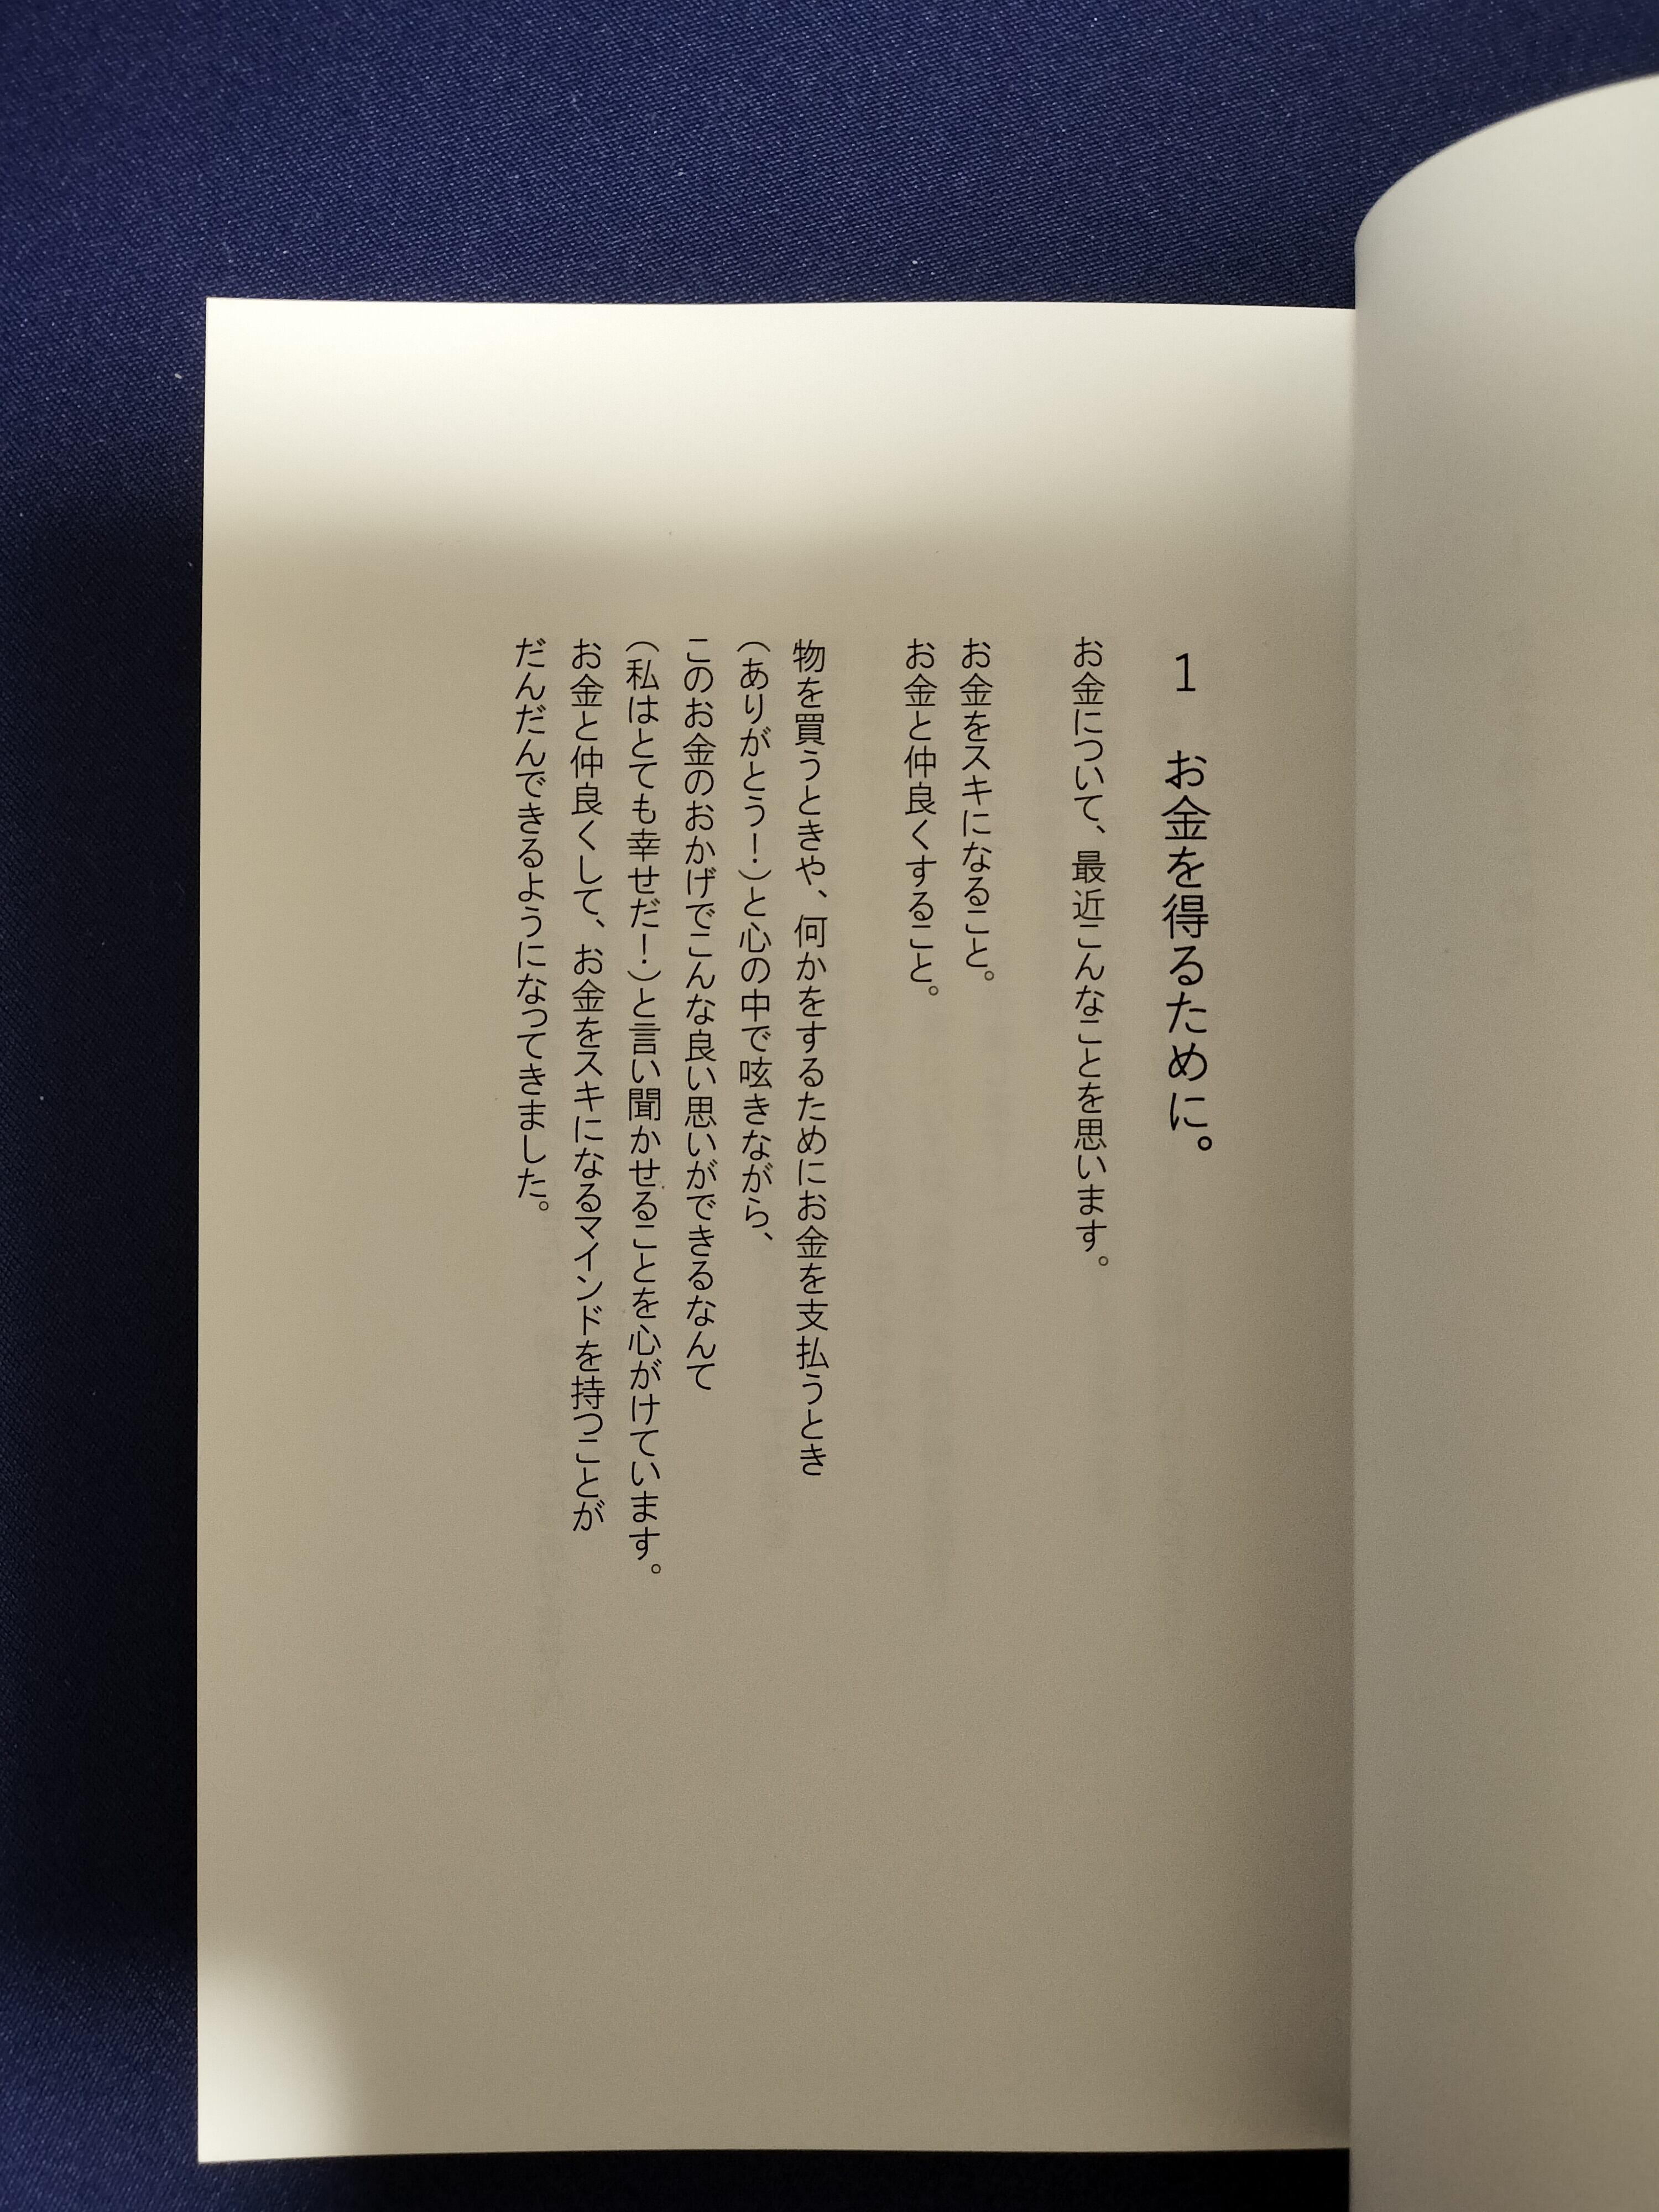 1 お金を得るために。
お金について、最近こんなことを思います。
お金をスキになること。
お金と仲良くすること。
物を買うときや、何かをするためにお金を支払うとき
(ありがとう！)と心の中で呟きながら、
このお金のおかげでこんな良い思いができるなんて
(私はとても幸せだ！)と言い聞かせることを心がけています。
お金と仲良くして、お金をスキになるマインドを持つことが
だんだんできるようになってきました。